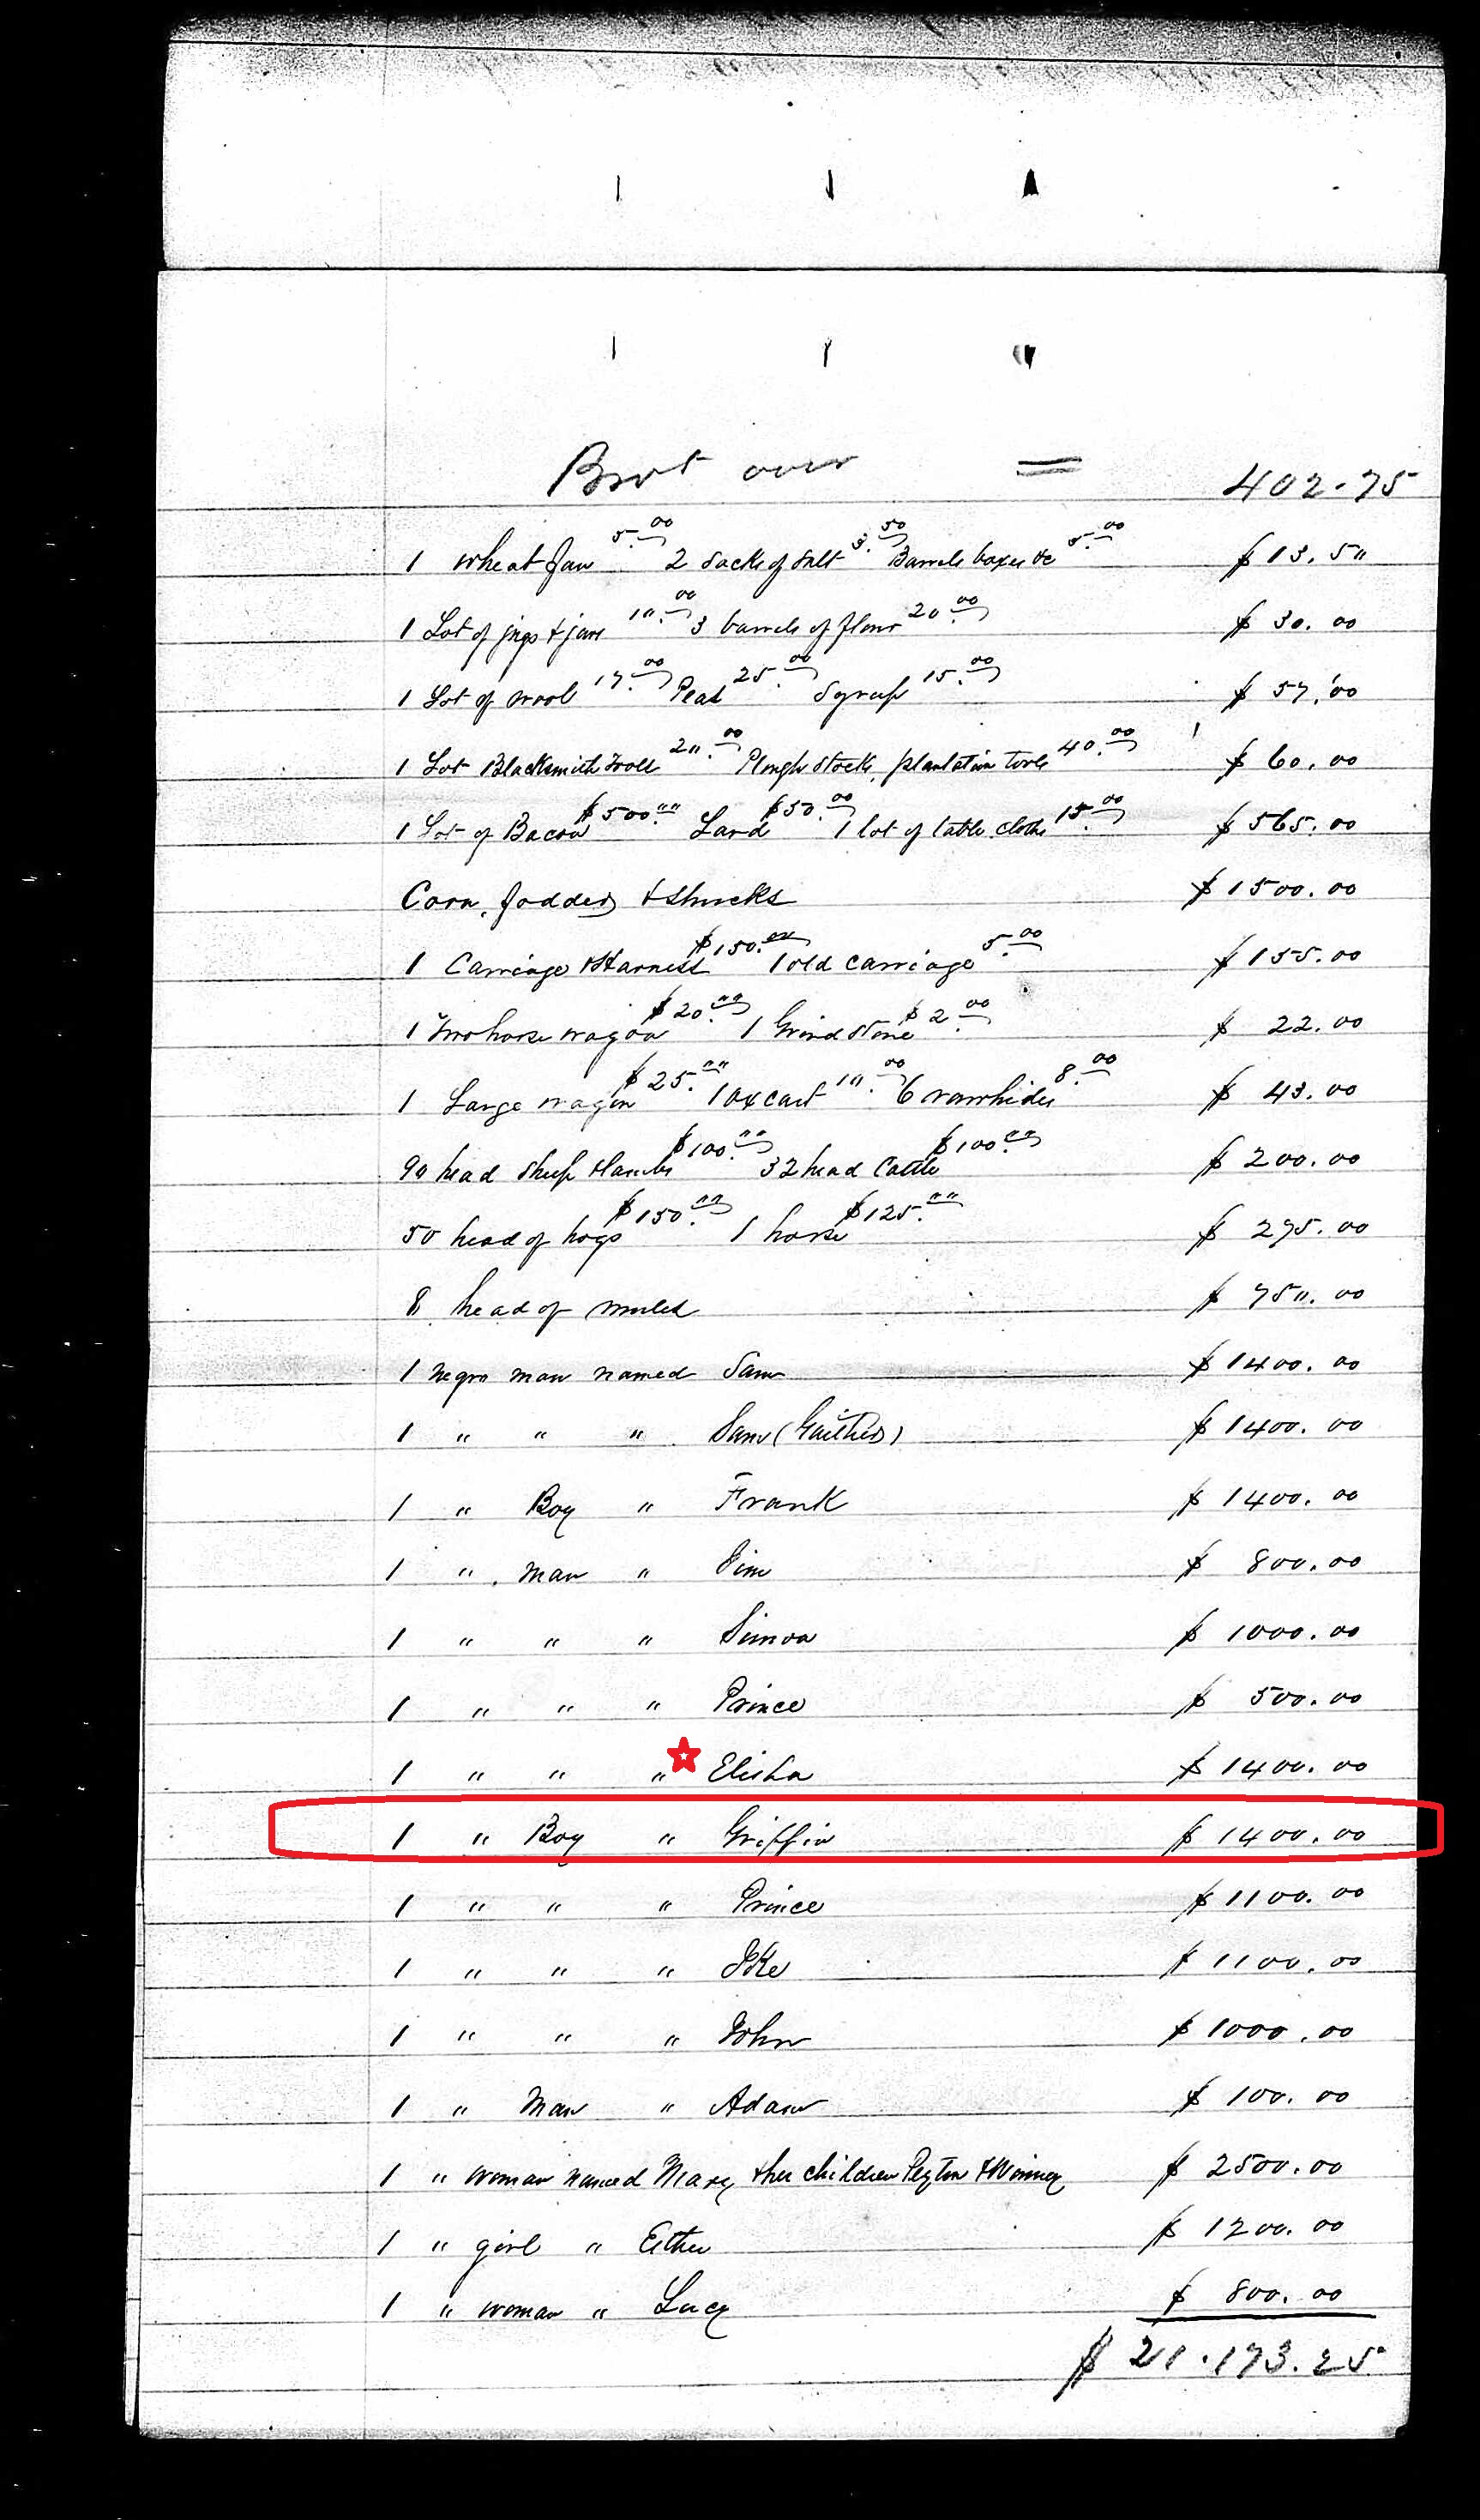 Brot over = 402.75
1 Wheat fan 5.00 2 Sacks of Salt 3.50 Barrels boxes &c 5.00 $ 13.50
1 Lot of jugs & jars 10.00 3 barrels of flour 20.00 $ 30.00
1 Lot of wool 17.00 Peas 25.00 Syrup 15.00 $ 57.00
1 Lot Blacksmith tools 20.00 Plough stocks, plantation tools 40.00 $ 60.00
1 Lot of Bacon $500.00 Lard $50.00 1 lot of table cloths 15.00 $ 565.00
Corn, fodder & shucks $ 1500.00
1 Carriage & Harness $150.00 1 old carriage 5.00 $ 155.00
1 Two horse wagon $20.00 1 Grind stone $2.00 $ 22.00
1 Large wagon $25.00 1 ox cart 10.00 6 rawhides 8.00 $ 43.00
90 head sheep & lambs $100.00 32 head Cattle $100.00 $ 200.00
50 head of hogs $150.00 1 horse $125.00 $ 275.00
8 head of mules $ 750.00
1 negro man named Sam $ 1400.00
1 " " " Sam (Gaither) $ 1400.00
1 " Boy " Frank $ 1400.00
1 " man " Jim $ 800.00
1 " " " Simon $ 1000.00
1 " " " Prince $ 500.00
1 " " " Elisha $ 1400.00
1 " Boy " Griffin $ 1400.00
1 " " " Prince $ 1100.00
1 " " " Ike $ 1100.00
1 " " " John $ 1000.00
1 " Man " Adam $ 100.00
1 " woman named Mary & her children Peyton & Winney $ 2500.00
1 " girl " Esther $ 1200.00
1 " woman " Lucy $ 800.00
$ 21.173.25